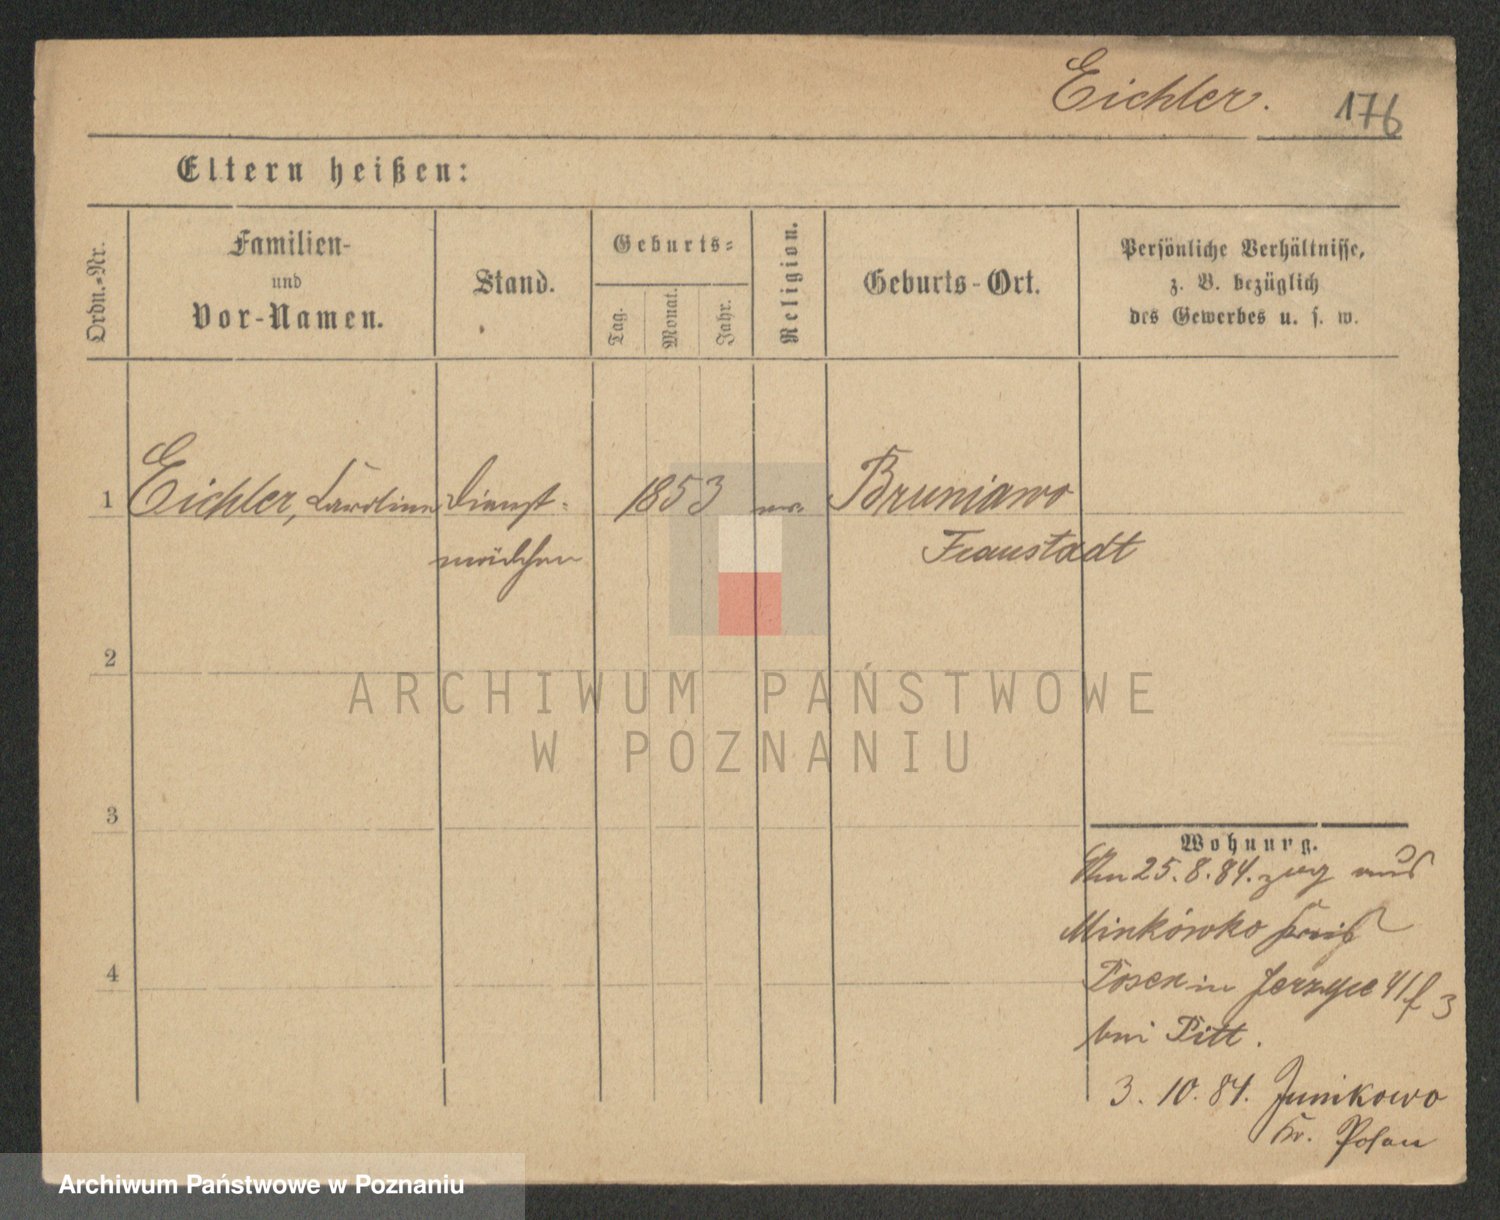 Eichler.
176
Eltern heißen:
Ordn.-Nr.
Familien-
und
Vor-Namen.
Stand.
Geburts-
Tag.
Monat.
Jahr.
Religion.
Geburts-Ort.
Persönliche Verhältnisse,
z. B. bezüglich
des Gewerbes u. s. w.
1
Eichler, Caroline
Dienst-
mädchen
1853
Bruniawo
Fraustadt
2
ARCHIWUM PAŃSTWOWE
W POZNANIU
3
4
Wohnung.
Am 25.8.84. zog aus
Minkówko Kreis
Posen in Jerzyce 41 f 3
bei Pitt.
3. 10. 84. Junikowo
Kr. Posen
Archiwum Państwowe w Poznaniu